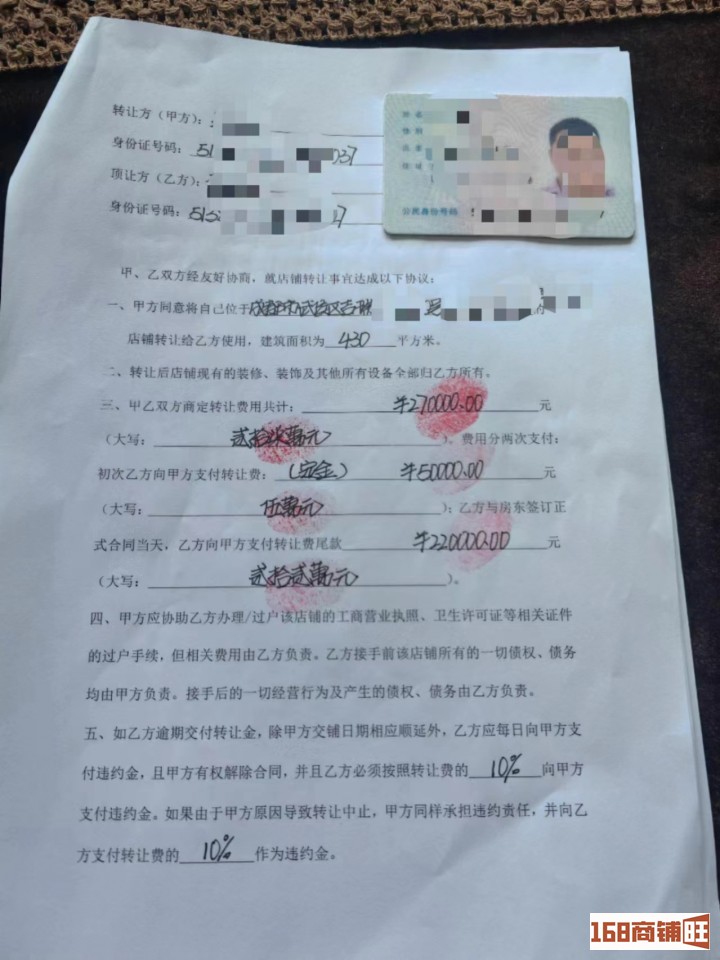 转让方（甲方）：
身份证号码：51 037
顶让方（乙方）：
身份证号码：515 27
公民身份号码
甲、乙双方经友好协商，就店铺转让事宜达成以下协议：
一、甲方同意将自己位于成都市武侯区吉 的
店铺转让给乙方使用，建筑面积为 430 平方米。
二、转让后店铺现有的装修、装饰及其他所有设备全部归乙方所有。
三、甲乙双方商定转让费用共计： ¥270000.00 元
（大写： 贰拾柒萬元 ）。费用分两次支付：
初次乙方向甲方支付转让费：（定金） ¥50000.00 元
（大写： 伍萬元 ）；乙方与房东签订正
式合同当天，乙方向甲方支付转让费尾款 ¥220000.00 元
（大写： 贰拾贰萬元 ）。
四、甲方应协助乙方办理/过户该店铺的工商营业执照、卫生许可证等相关证件
的过户手续，但相关费用由乙方负责。乙方接手前该店铺所有的一切债权、债务
均由甲方负责。接手后的一切经营行为及产生的债权、债务由乙方负责。
五、如乙方逾期交付转让金，除甲方交铺日期相应顺延外，乙方应每日向甲方支
付违约金，且甲方有权解除合同，并且乙方必须按照转让费的 10% 向甲方
支付违约金。如果由于甲方原因导致转让中止，甲方同样承担违约责任，并向乙
方支付转让费的 10% 作为违约金。
168商铺旺